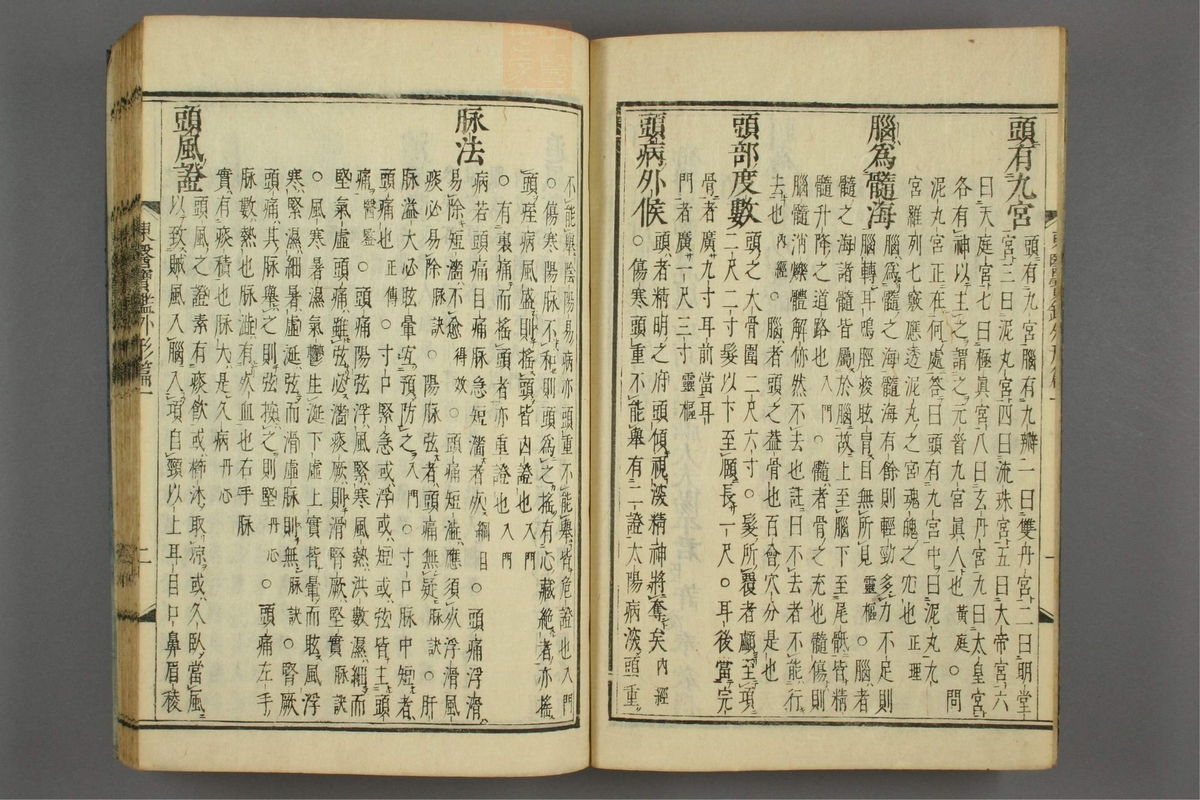 頭有九宮 頭有九宮腦有九瓣一曰雙丹宮二曰明堂
宮三曰泥丸宮四曰流珠宮五曰大帝宮六
曰天庭宮七曰極眞宮八曰玄丹宮九曰太皇宮
各有神以主之謂之元首九宮眞人也黃庭○問
泥丸宮正在何處答曰頭有九宮中曰泥丸九
宮羅列七竅應透泥丸之宮魂魄之穴也正理
腦爲髓海 腦爲髓之海髓海有餘則輕勁多力不足則
腦轉耳鳴脛痠眩冒目無所見靈樞○腦者
髓之海諸髓皆屬於腦故上至腦下至尾骶皆精
髓升降之道路也入門○髓者骨之充也髓傷則
腦髓消爍體解㑊然不去也註曰不去者不能行
去也內經○腦者頭之蓋骨也百會穴分是也
頭部度數 頭之大骨圍二尺六寸○髮所覆者顱至項
二尺二寸髮以下至頤長一尺○耳後當完
骨者廣九寸耳前當耳
門者廣一尺三寸靈樞
頭病外候 頭者精明之府頭傾視深精神將奪矣內經
○傷寒頭重不能擧有二證太陽病深頭重
不能擧陰陽易病亦頭重不能擧皆危證也入門
○傷寒陽脉不和則頭爲之搖有心藏絕者亦搖
頭痓病風盛則搖頭皆內證也入門
○有裏痛而搖頭者亦重證也入門
脉法 病若頭痛目痛脉急短濇者死綱目○頭痛浮滑
易除短濇不愈得效○頭痛短濇應須死浮滑風
痰必易除脉訣○陽脉弦者頭痛無疑脉訣○肝
脉溢大必眩暈宜預防之入門○寸口脉中短者
頭痛也正傳○寸口緊急或浮或短或弦皆主頭
痛醫鑒○頭痛陽弦浮風緊寒風熱洪數濕細而
堅氣虛頭痛雖弦必濇痰厥則滑腎厥堅實脉訣
○風寒暑濕氣鬱生涎下虛上實皆暈而眩風浮
寒緊濕細暑虛涎弦而滑虛脉則無脉訣○腎厥
頭痛其脉擧之則弦按之則堅丹心○頭痛左手
脉數熱也脉濇有死血也右手脉
實有痰積也脉大是久病丹心
頭風證 頭風之證素有痰飮或櫛沐取涼或久臥當風
以致賊風入腦入項自頸以上耳目口鼻眉稜
東醫寶鑑外形篇一